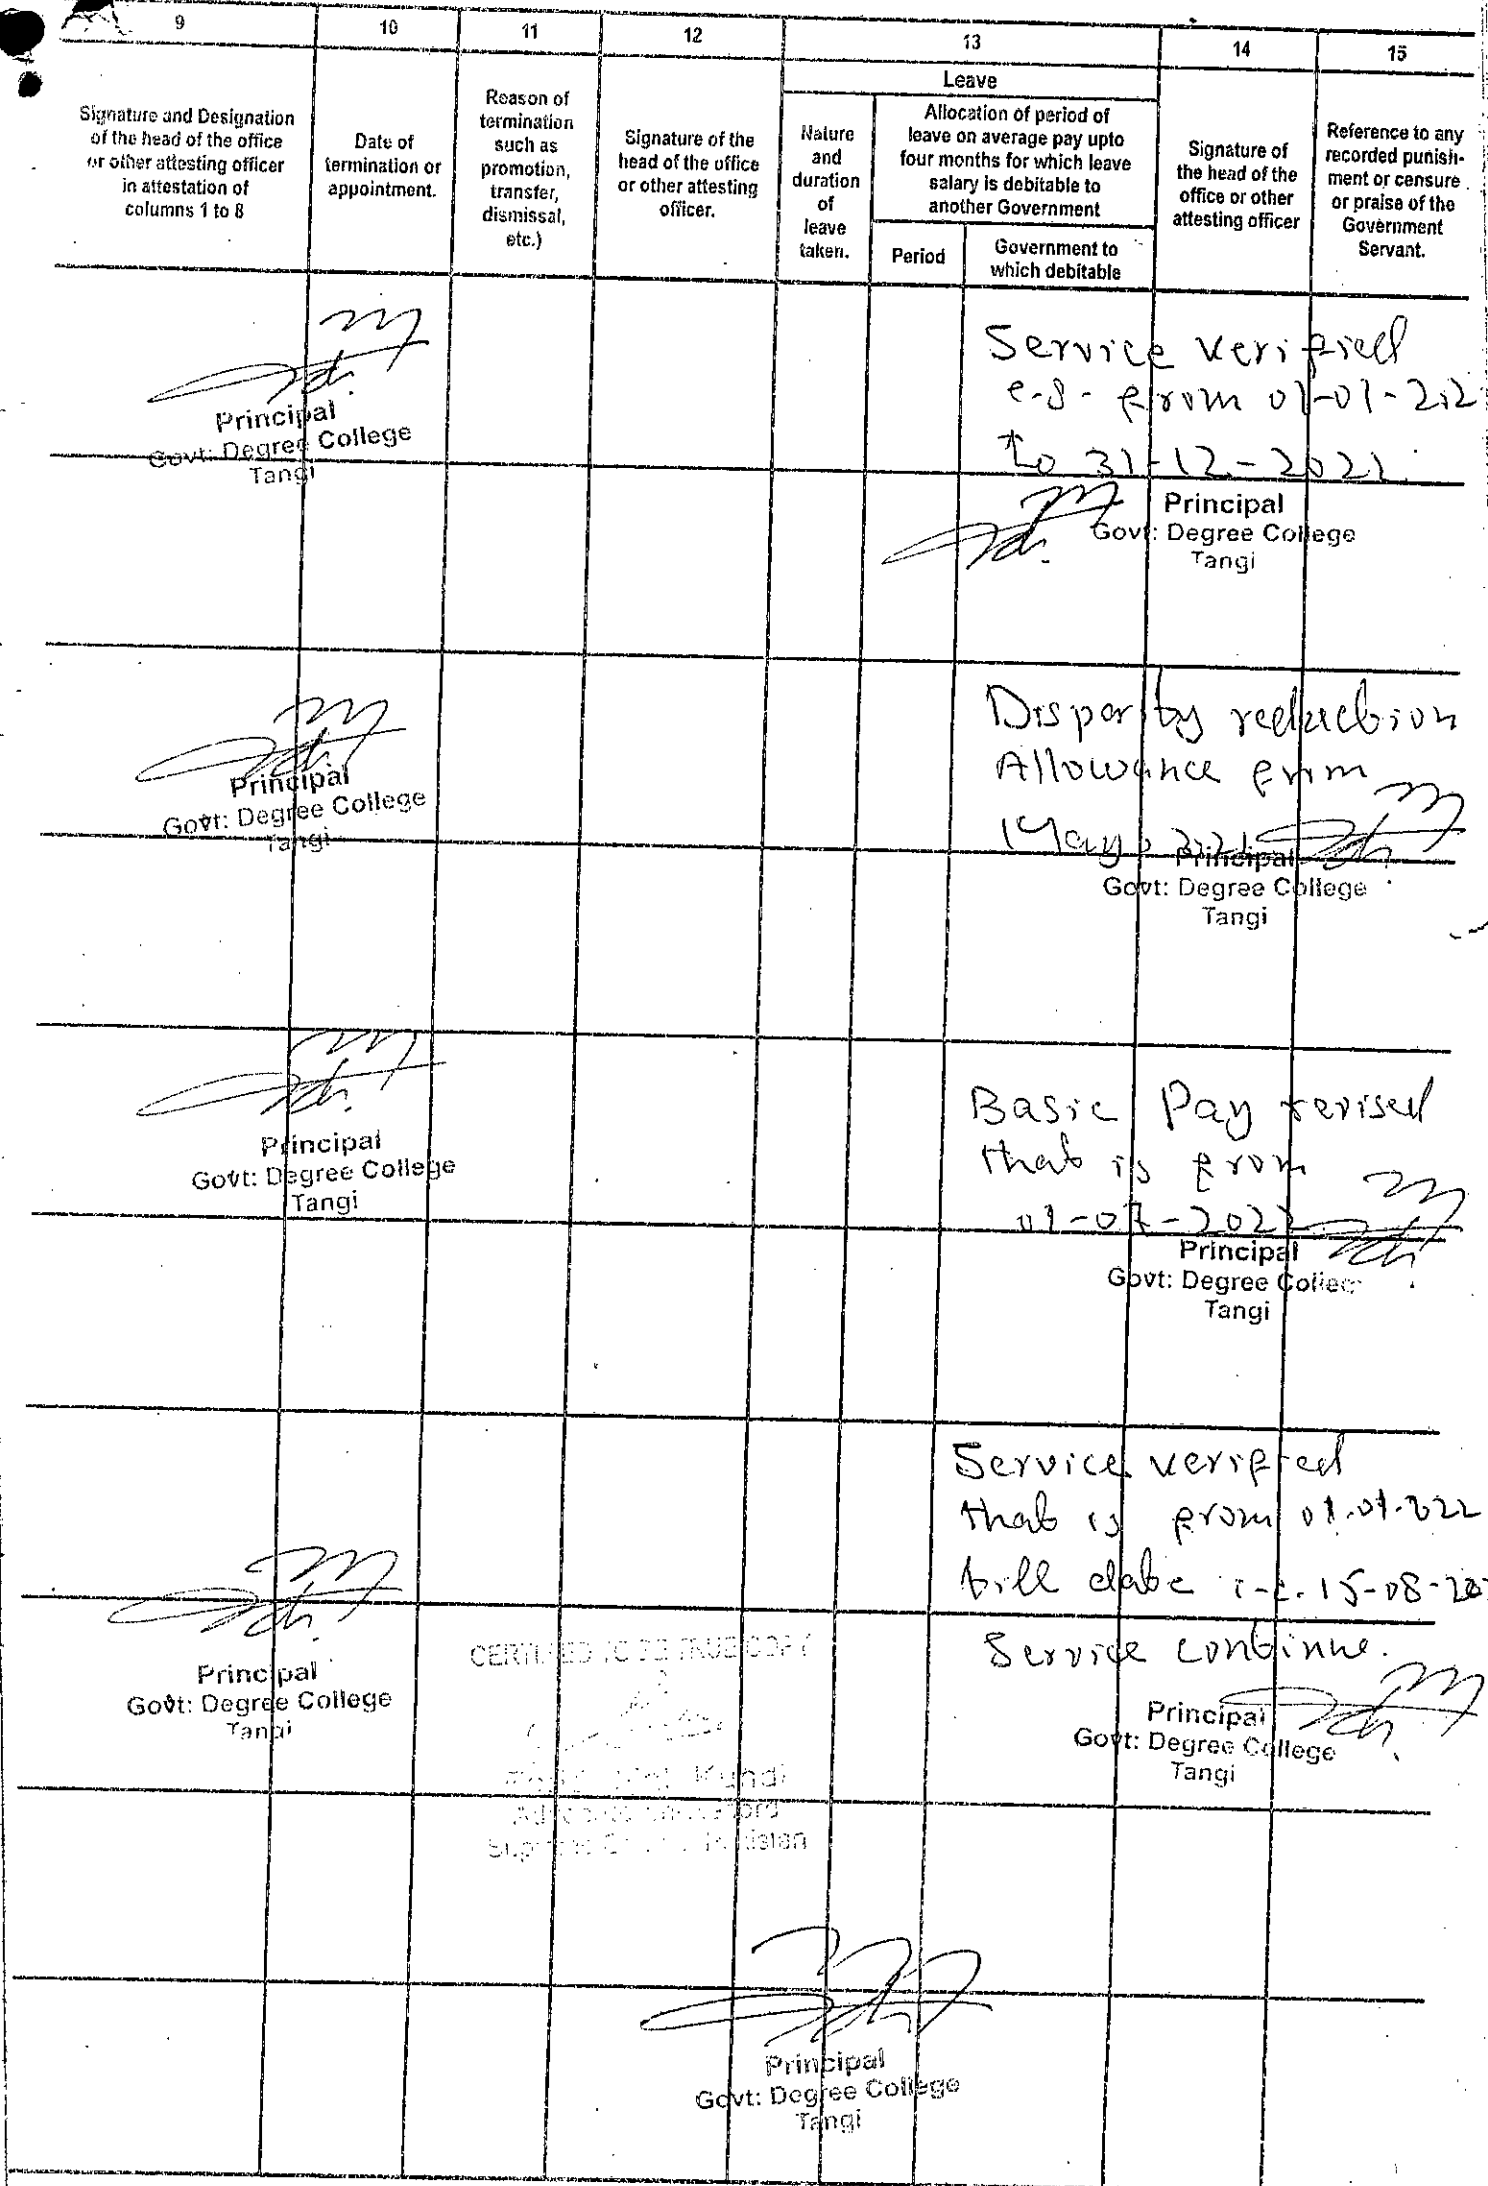 9 10 11 12 13 14 15
Signature and Designation
of the head of the office
or other attesting officer
in attestation of
columns 1 to 8
Date of
termination or
appointment.
Reason of
termination
such as
promotion,
transfer,
dismissal,
etc.)
Signature of the
head of the office
or other attesting
officer.
Leave
Nature
and
duration
of
leave
taken.
Allocation of period of
leave on average pay upto
four months for which leave
salary is debitable to
another Government
Period
Government to
which debitable
Signature of
the head of the
office or other
attesting officer
Reference to any
recorded punish-
ment or censure
or praise of the
Government
Servant.
Principal
Govt: Degree College
Tangi
Service verified
from 01-01-
to 31-12-2021.
Principal
Govt: Degree College
Tangi
Principal
Govt: Degree College
Tangi
Disparity reduction
Allowance from
May
Principal
Govt: Degree College
Tangi
Principal
Govt: Degree College
Tangi
Basic Pay revised
that is from
01-07-2022
Principal
Govt: Degree Colleg
Tangi
Service verified
that is from 01.01.2022
till date i-e. 15-08-20
Service continue.
Principal
Govt: Degree College
Tangi
Principal
Govt: Degree College
Tangi
CERTIFIED TO BE TRUE COPY
Kundi
Supreme Court Pakistan
Principal
Govt: Degree College
Tangi